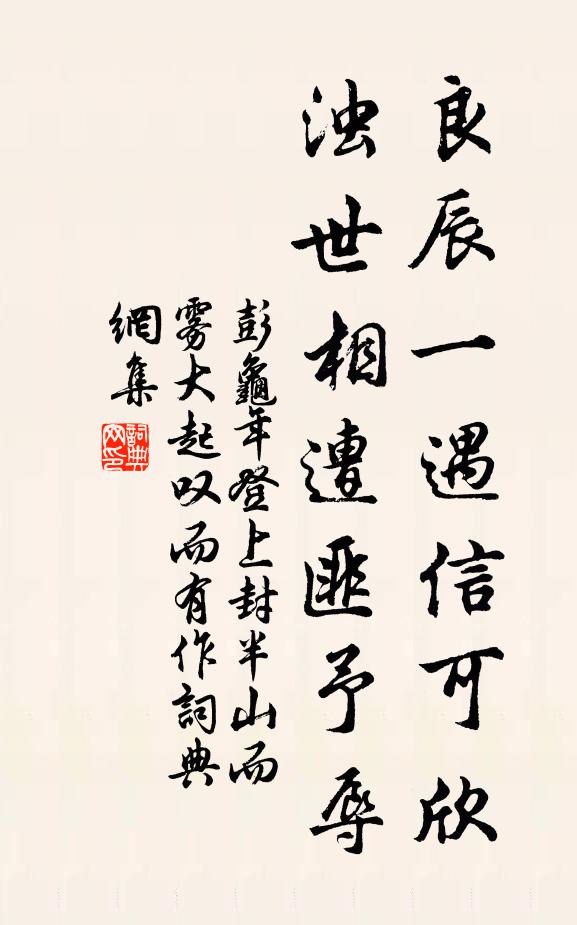 良辰一遇信可欣
浊世相遭匪予辱
彭龜年登上封半山而
雾大起叹而有作詞典
網集
詞典
网印